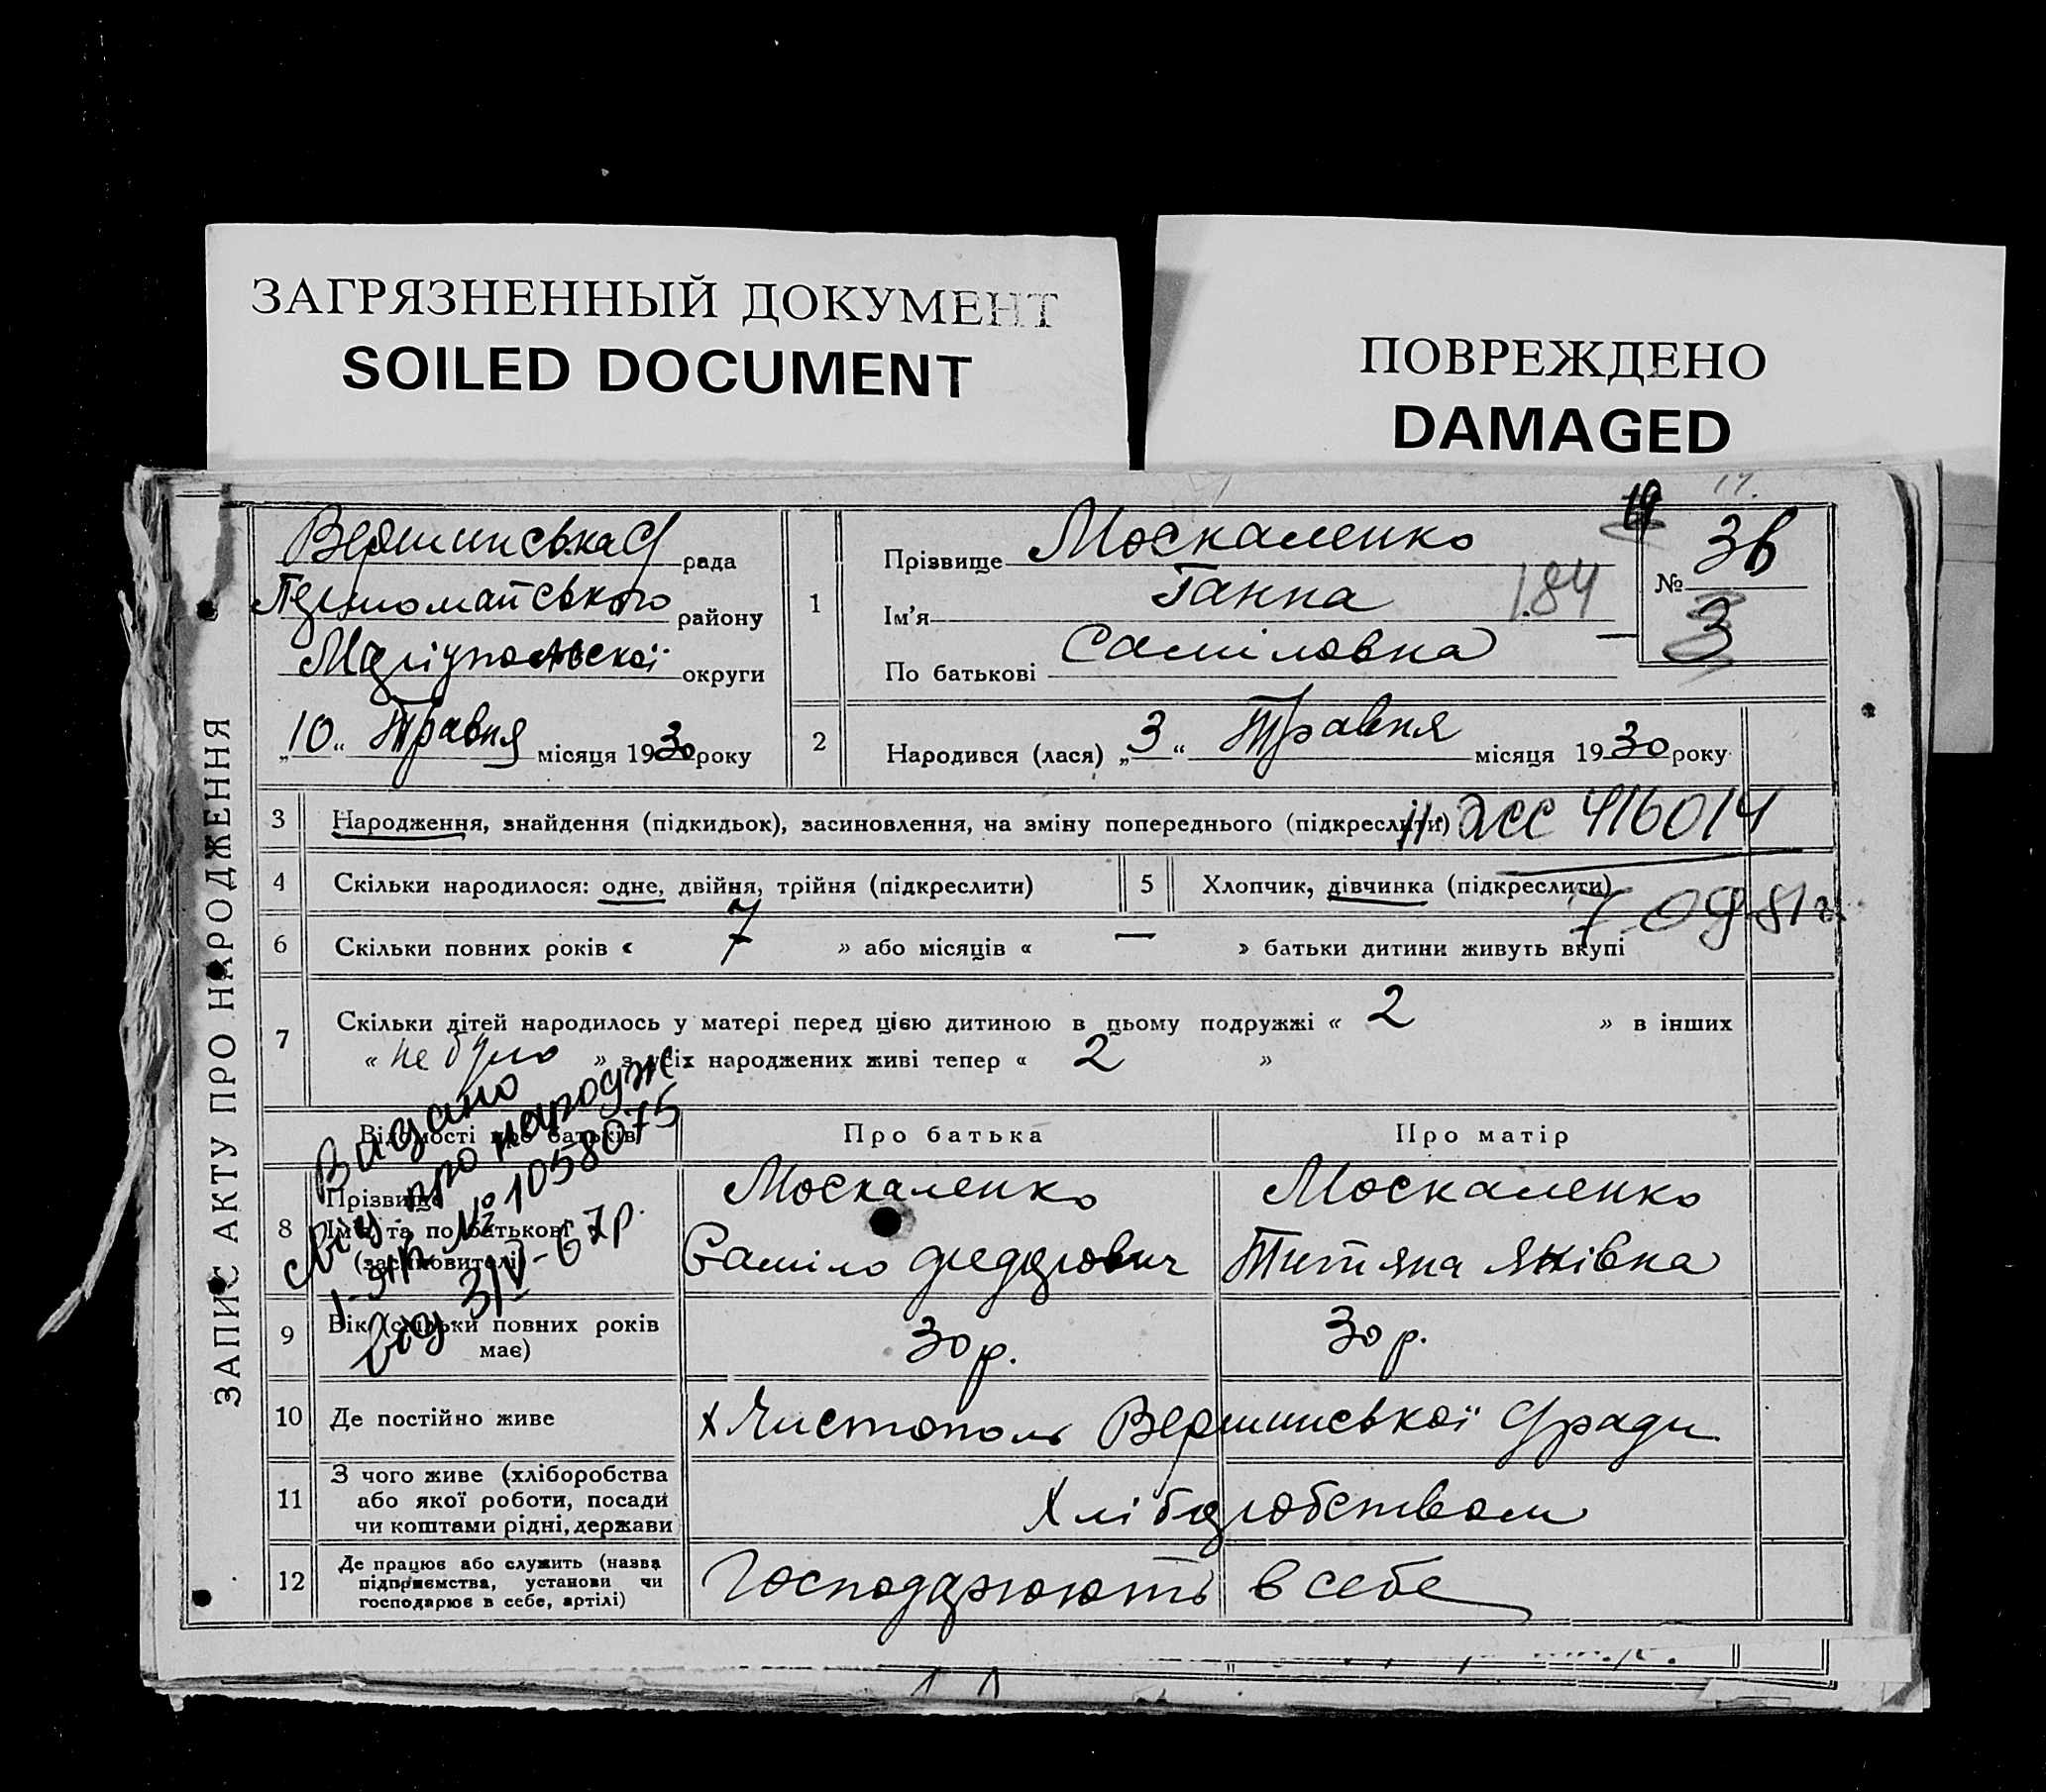 ЗАГРЯЗНЕННЫЙ ДОКУМЕНТ
SOILED DOCUMENT
ПОВРЕЖДЕНО
DAMAGED
ЗАПИС АКТУ ПРО НАРОДЖЕННЯ
Вершинська с/рада
Першомайського району
Маріупольської округи
„10“ Травня місяця 1930 року
1
Прізвище Москаленко
Ім'я Ганна
184
По батькові Саміловна
19
17.
№ 3в
3
2
Народився (лася) „3“ Травня місяця 1930 року
3 Народження, знайдення (підкидьок), засиновлення, на зміну попереднього (підкреслити)
416014
4 Скільки народилося: одне, двійня, трійня (підкреслити)
5 Хлопчик, дівчинка (підкреслити)
7.09.81г.
6 Скільки повних років « 7 » або місяців « — » батьки дитини живуть вкупі
7 Скільки дітей народилось у матері перед цією дитиною в цьому подружжі « 2 » в інших
« не було » з усіх народжених живі тепер « 2 »
Видано
свід. про народж
№ 1058075
від 3/IV-67р.
Відомості про батьків
Про батька
Про матір
8 Прізвище
Ім'я та по батькові
(засиновителі)
Москаленко
Саміло Федорович
Москаленко
Титяна Яківна
9 Вік (скільки повних років
має)
30 р.
30 р.
10 Де постійно живе
х Чистополь Вершинської с/ради
11 З чого живе (хліборобства
або якої роботи, посади
чи коштами рідні, держави
Хліборобством
12 Де працює або служить (назва
підприємства, установи чи
господарює в себе, артілі)
Господарюють в себе